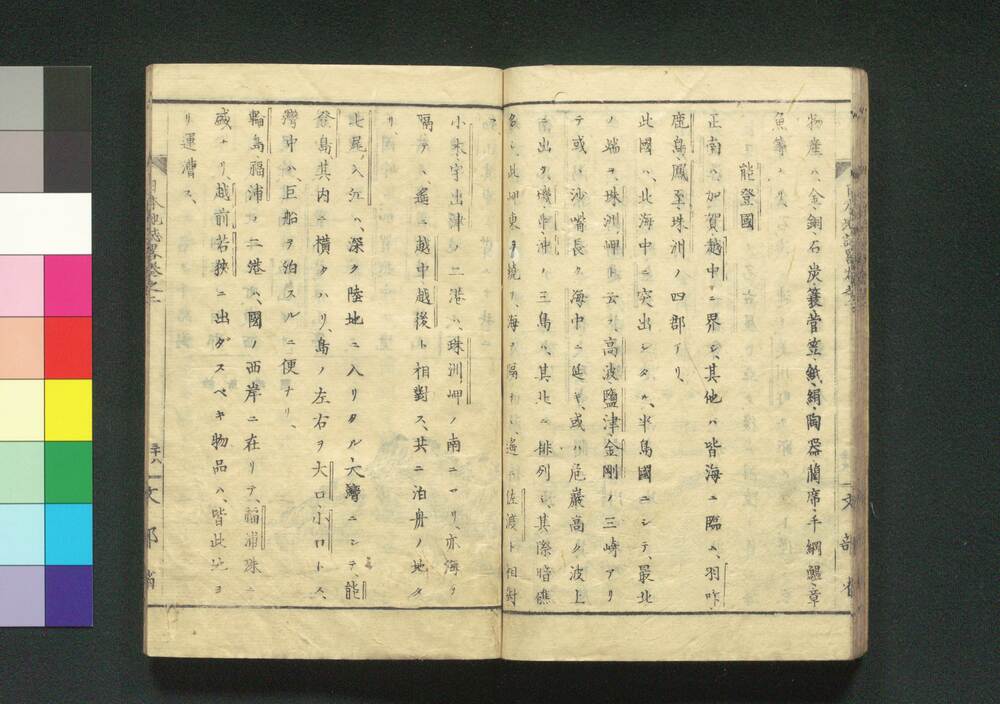 物産ハ、金、銅、石炭、簑、菅笠、紙、絹、陶器、藺席、手綱、鰮、章
魚等
能登國
正南ハ、加賀越中ニ界シ、其他ハ皆海ニ臨ム、羽咋、
鹿島、鳳至、珠洲ノ四郡アリ、
此國ハ、北海中ニ突出シタル、半島國ニシテ、最北
ノ端ヲ、珠洲岬ト云フ、高波、鹽津、金剛ノ三崎アリ
テ、或ハ沙嘴長ク海中ニ延キ、或ハ危巖高ク波上
ニ出ツ、磯、中、沖ノ三島ハ、其北ニ排列シ、其際暗礁
多シ、此岬東ヲ繞リ、海ヲ隔テ、遙ニ佐渡ト相對
小木、宇出津ノ二港ハ、珠洲岬ノ南ニアリ、亦海ヲ
隔テ、遙ニ越中、越後ト相對ス、共ニ泊舟ノ地タ
リ、
七尾ノ入江ハ、深ク陸地ニ入リタル、大灣ニシテ、能
登島、其内ニ横タハリ、島ノ左右ヲ大口、小口トス、
灣中ハ、巨船ヲ泊スルニ便ナリ、
輪島、福浦ノ二港ハ、國ノ西岸ニ在リテ、福浦殊ニ
盛ナリ、越前、若狹ニ出ダスベキ物品ハ、皆此地ヨ
リ運漕ス、
日本地誌略卷之二
三十八
文部省